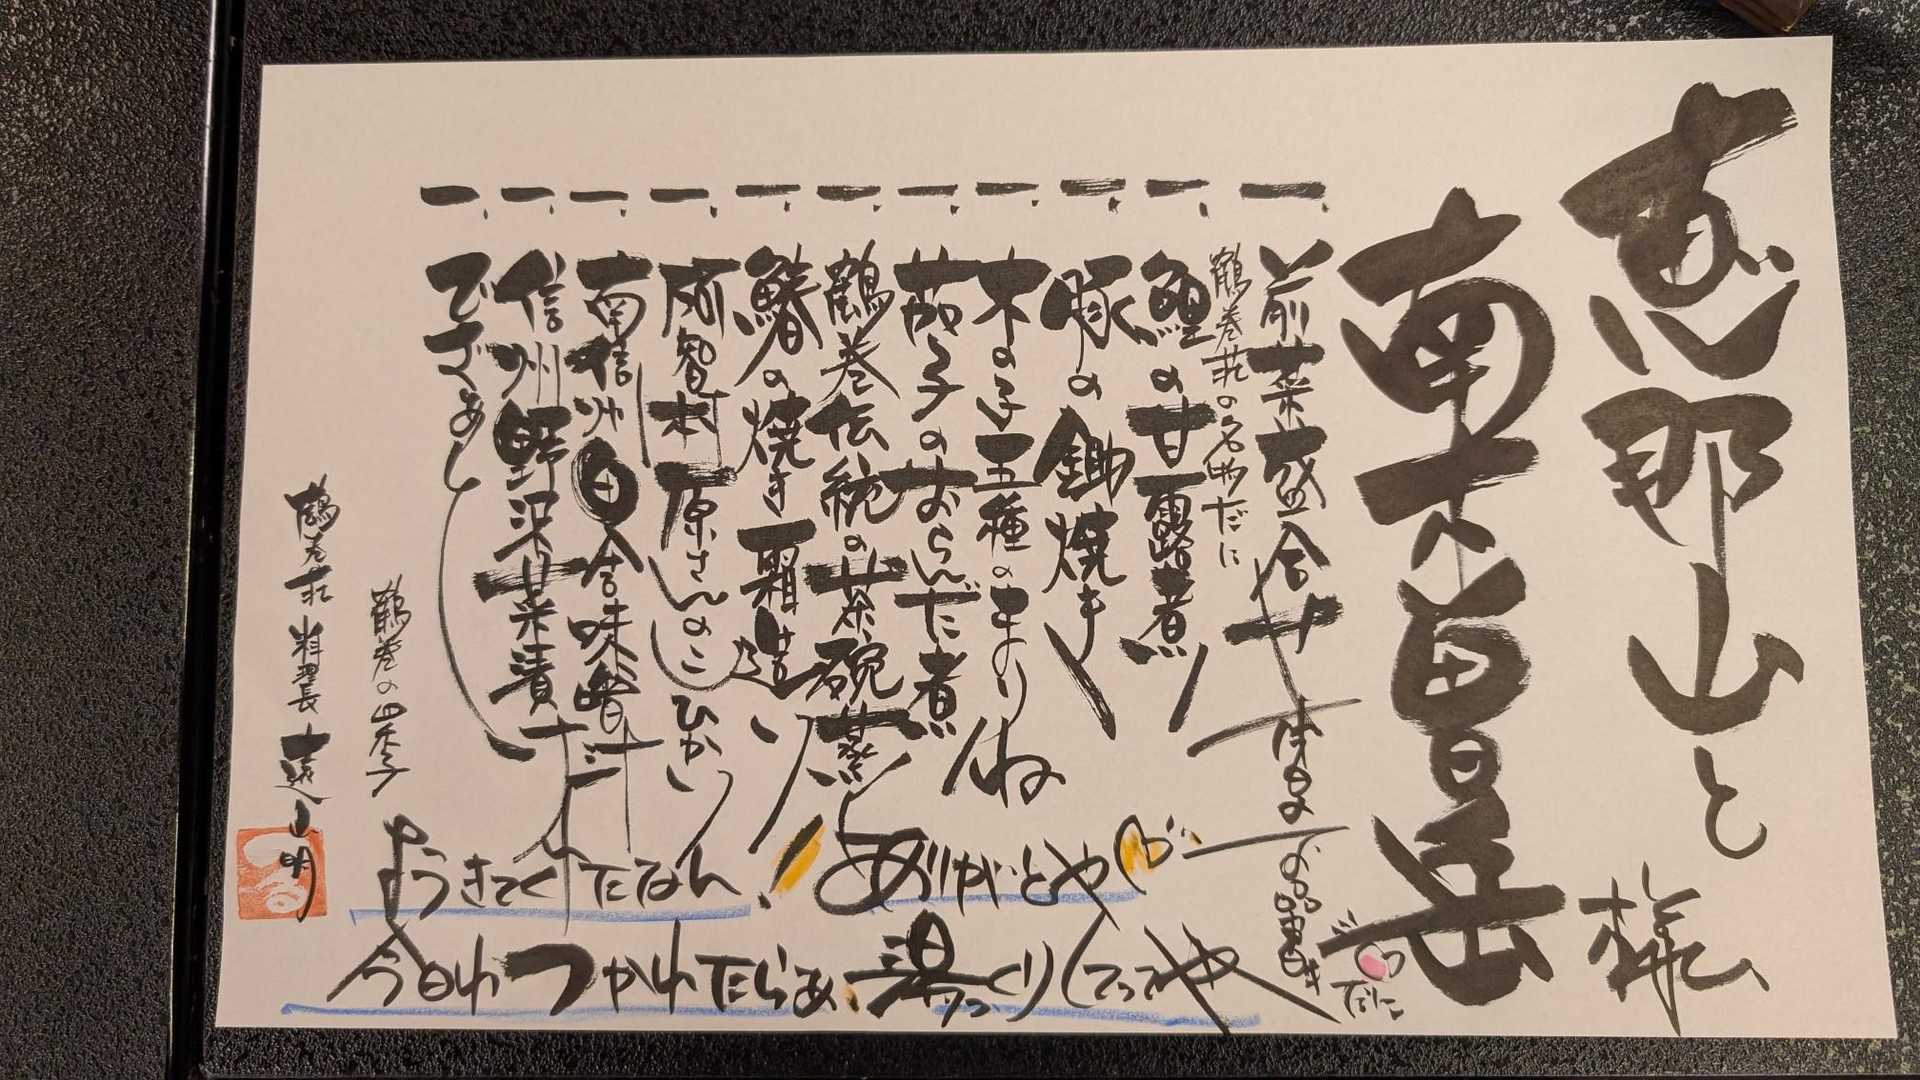 恵那山と
南木曽岳
様
一、前菜盛合せ
鶴巻荘の名物だに
一、鯉の甘露煮
一、豚の鋤焼き
一、木の子五種のまりね
一、茄子のおらんだ煮
一、鶴巻伝統の茶碗蒸し
一、鰆の焼き霜造り
一、阿智村原さんのこしひかり
一、南信州田舎味噌汁
一、信州野沢菜漬け
一、でざあと
お品書き
だに
鶴巻の四季
鶴巻荘 料理長 遠山明
ようきてくたなん!ありがとやぃ
今日はつかれたらぁ、湯っくりしてってや